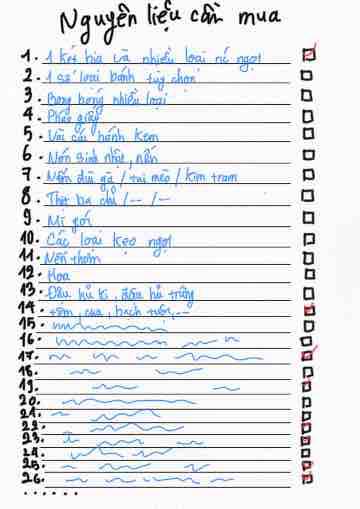 Nguyên liệu cần mua
1. 1 Két bia và nhiều loại nc ngọt
2. 1 số loại bánh tùy chọn
3. Bong bóng nhiều loại
4. Pháo giấy
5. Vài cái bánh kem
6. Nón sinh nhật, nến
7. Nấm đùi gà / tai mèo / kim tram
8. Thịt ba chỉ / -- / --
9. Mì gói
10. Các loại kẹo ngọt
11. Nến thơm
12. Hoa
13. Đậu hủ ki, đậu hủ trứng
14. tôm, cua, bạch tuộc, --
15.
16.
17.
18.
19.
20.
21.
22.
23.
24.
25.
26.
......